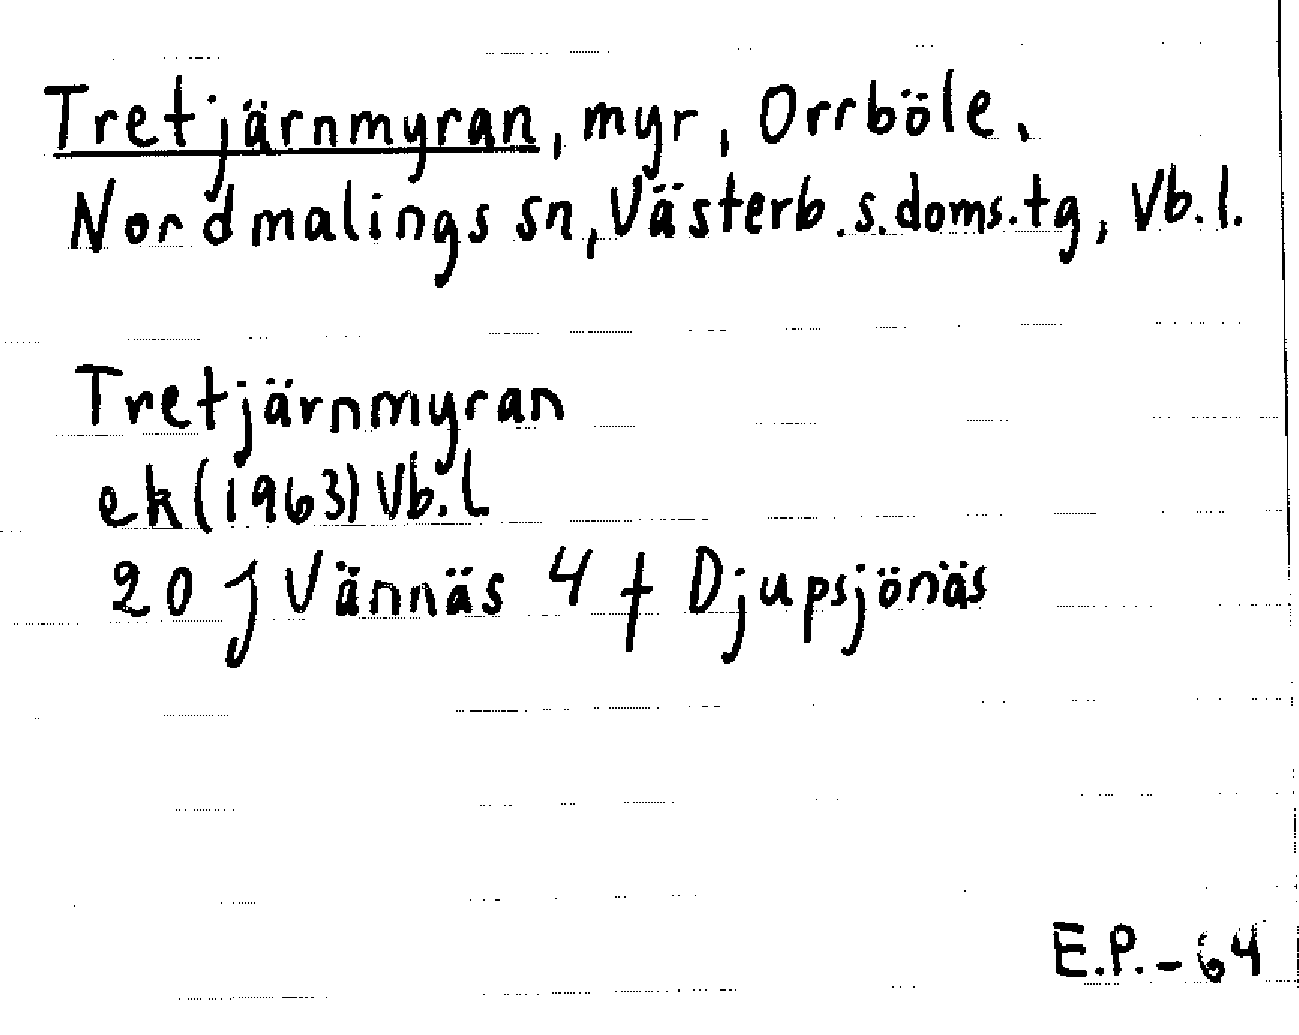 Tretjärnmyran, myr, Orrböle,
Nordmalings sn, Västerb.s.doms.tg, Vb.l.
Tretjärnmyran
ek (1963) Vb.l
20 J Vännäs 4 f Djupsjönäs
E.P.-64